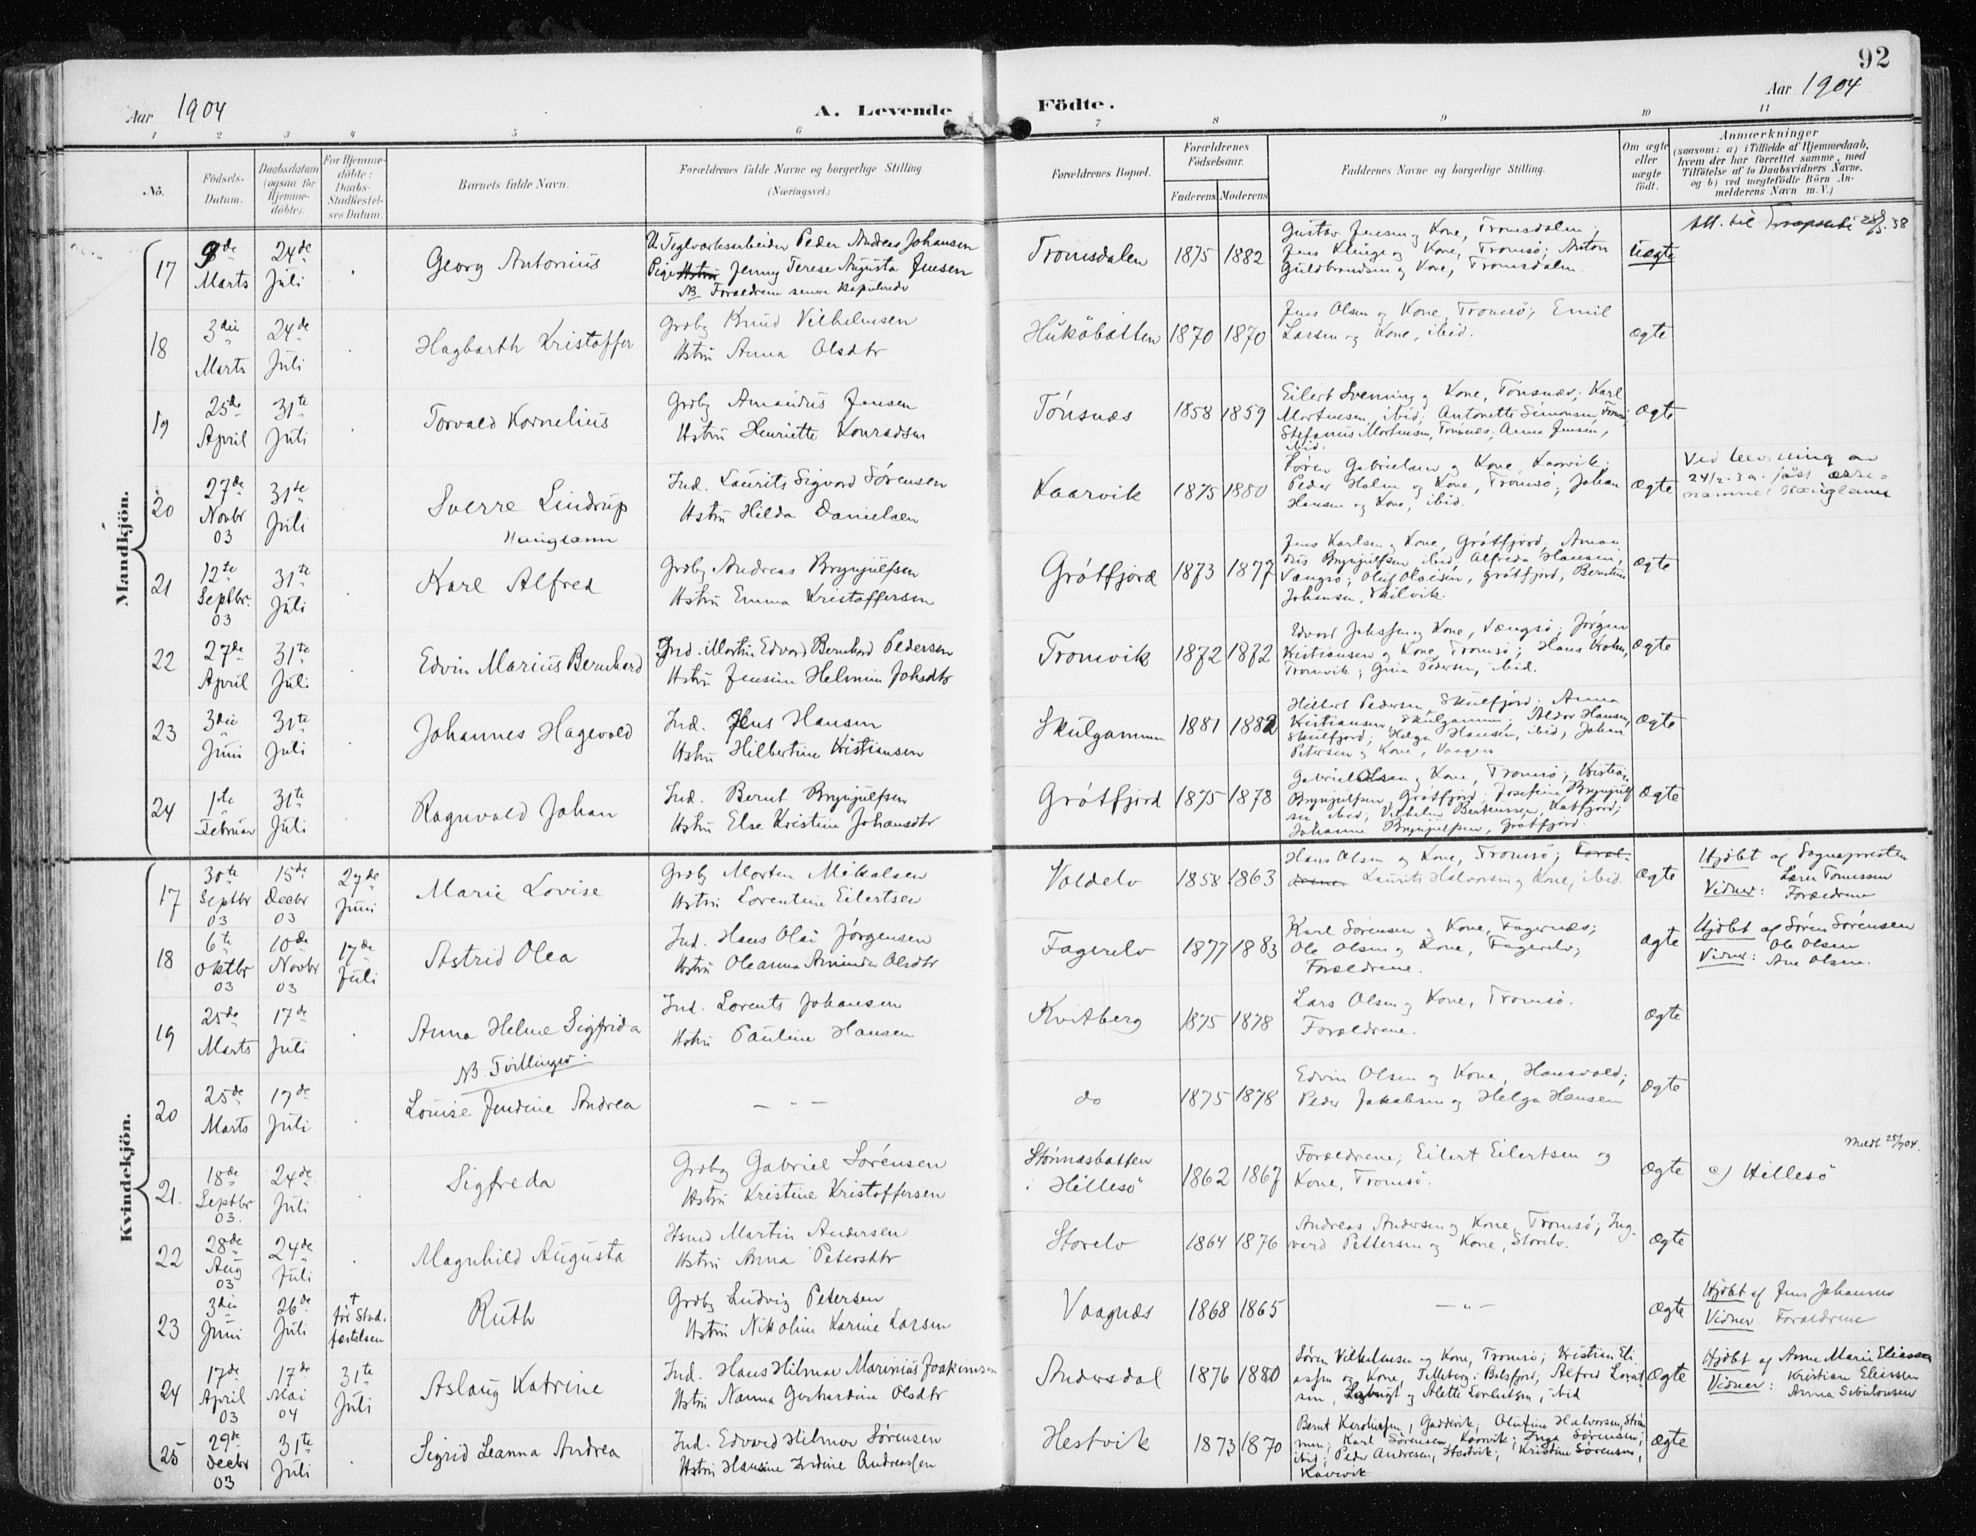 92
Aar 1904
A. Levende Födte.
Aar 1904
1 2 3 4 5 6 7 8 9 10 11
No.
Födsels-Datum.
Daabsdatum (ogsaa for Hjemme-döbte).
For Hjemme-döbte: Daabs-Stadfæstel-ses Datum.
Barnets fulde Navn.
Forældrenes fulde Navne og borgerlige Stilling (Næringsvei.)
Forældrenes Bopæl.
Forældrenes Födselsaar.
Faderens Moderens
Faddernes Navne og borgerlige Stilling.
Om ægte eller uægte födt.
Anmærkninger
(saasom: a) i Tilfælde af Hjemmedaab,
hvem der har forrettet samme, med
Tilföielse af to Daabsvidners Navne,
og b) ved uægtefödte Börn An-
melderens Navn m. V.)
Mandkjön.
17 9de Marts 24de Juli Georg Antonius
Teglværksarbeider Peder Andreas Johansen
Pige Jenny Terese Augusta Jensen
NB Forældrene senere
Tromsdalen 1875 1882
Gustav Jensen og Kone, Tromsdalen;
Jens Klinge og Kone, Tromsö; Anton
Guldbrandsen og Kone, Tromsdalen.
Uægte
Att. til
18 3die Marts 24de Juli Hagbarth Kristoffer
Grdbg Knud Vilhelmsen
Hstru Anna Olsdtr
1870 1870
Jens Olsen og Kone, Tromsö; Emil
Larsen og Kone, ibid.
ægte
19 25de April 31te Juli Torvald Kornelius
Grdbg Amandus Jensen
Hstru Henriette Konradsen
Tönsnæs 1858 1859
Eilert Svenning og Kone, Tönsnæs; Karl
Mortensen, ibid; Antonette Simonsen,
Stefanus Mortensen, Tönsnæs; Anna Jensen,
ibid.
ægte
20 27de Novbr 03 31te Juli Sverre Lindrup
Ind. Laurits Sigvard Sörensen
Hstru Hilda Danielsen
Kaarvik 1875 1880
Sören Gabrielsen og Kone, Kaarvik;
Peder Holm og Kone, Tromsö; Johan
Hansen og Kone, ibid.
ægte
21 12te Septbr. 03 31te Juli Karl Alfred
Grdbg Andreas Brynjulfsen
Hstru Emma Kristoffersen
Grötfjord 1873 1877
Jens Karlsen og Kone, Grötfjord; Aman-
dus Brynjulfsen ibid; Alfreda Hansen,
Vængsö; Oluf Olaisen, Grötfjord; Berntine
Johansen, Skilvik.
ægte
22 27de April 31te Juli Edvin Marius Bernhard
Ind. Martin Edvard Bernhard Pedersen
Hstru Jensine Helmine Johsdtr
Tromvik 1872 1872
Edvard Johnsen og Kone, Vængsö; Jörgen
Kristiansen og Kone, Tromsö; Hans Holm,
Tromvik; Gina Pedersen, ibid.
ægte
23 3die Juni 31te Juli Johannes Hagevald
Ind. Jens Hansen
Hstru Hilbertine Kristiansen
Skulgammen 1881 1882
Hilbert Pedersen, Skulfjord; Anna
Kristiansen, Skulgammen; Aldor Hansen,
Skulfjord; Helga Hansen, ibid, Johan
Petersen og Kone, Vaagen
ægte
24 1ste Februar 31te Juli Ragnvald Johan
Ind. Bernt Brynjulfsen
Hstru Else Kristine Johansdtr
Grötfjord 1875 1878
Gabriel Olsen og Kone, Tromsö; Kristian
Brynjulfsen, Grötfjord; Josefine Brynjulf-
sen ibid; Vilhelm Berteussen, Katfjord;
Johanne Brynjulfsen, Grötfjord.
ægte
Kvindekjön.
17 30te Septbr 03 15de Decbr 03 27de Juni Marie Lovise
Grdbg Morten Mikalsen
Hstru Lorentine Eilertsen
Voldelv 1858 1863
Hans Olsen og Kone, Tromsö;
Laurits Halvorsen og Kone, ibid.
ægte
Hjdbt af Sognepresten
Vidner: Forældrene
18 6te Oktbr 03 10de Novbr 03 17de Juli Astrid Olea
Ind. Hans Olai Jörgensen
Hstru Oleanna Aminda Olsdtr
Fagerelv 1877 1883
Karl Sörensen og Kone, Fagernæs;
Ole Olsen og Kone, Fagerelv;
Forældrene.
ægte
Hjdbt af Sören Sörensen
Vidner: Ole Olsen
Ane Olsen.
19 25de Marts 17de Juli Anna Helene Sigfrida
Ind. Lorents Johansen
Hstru Pauline Hansen
Kvitberg 1875 1878
Lars Olsen og Kone, Tromsö.
Forældrene.
ægte
NB Tvillinger
20 25de Marts 17de Juli Louise Jendine Andrea
— " —
do 1875 1878
Edvin Olsen og Kone, Hansvold;
Peder Jakobsen og Helga Hansen
ægte
21. 18de Septbr 03. 24de Juli Sigfreda
Grdbg Gabriel Sörensen
Hstru Kristine Kristoffersen
Stönnasbatten
i Hillesö
1862 1867
Forældrene; Eilert Eilertsen og
Kone, Tromsö.
ægte
Meldt 25/7 04.
c) Hillesö
22 28de Aug 03 24de Juli Magnhild Augusta
Hsmd Martin Andersen
Hstru Anna Petersdtr
Storelv 1864 1876
Andreas Andersen og Kone, Tromsö; Ing-
verd Pettersen og Kone, Storelv.
ægte
23 3die Juni 26de Juli † för Stad-fæstelsen Ruth
Grdbg Ludvig Petersen
Hstru Nikoline Karine Larsen
Vaagnæs 1868 1865
— " —
ægte
Hjdbt af Jens Johansen
Vidner Forældrene
24 17de April 03 17de Mai 04 31te Juli Aslaug Katrine
Ind. Hans Hilmar Marinius Joakimsen
Hstru Nanna Gerhardine Olsdtr
Andersdal 1876 1880
Sören Vilhelmsen og Kone, Tromsö; Kristian Eli-
assen og Kone, Balsfjord; Alfred Lorent-
sen, og Aletle Lorentsen, ibid
ægte
Hjdbt af Anne Marie Eliassen
Vidner: Kristian Eliassen
Anna Sibulonsen
25 29de Decbr 03 31te Juli Sigrid Leanna Andrea
Ind. Edvard Hilmar Sörensen
Hstru Hansine Indine Andreassen
Hestvik 1873 1870
Bernt Kerchiefsen, Gaddevik; Olufine Halvorsen, Ström-
men; Karl Sörensen, Kaarvik; Inga Sörensen,
ibid; Peder Andresen, Hestvik; Kristine Sörensen,
Kaavik
ægte